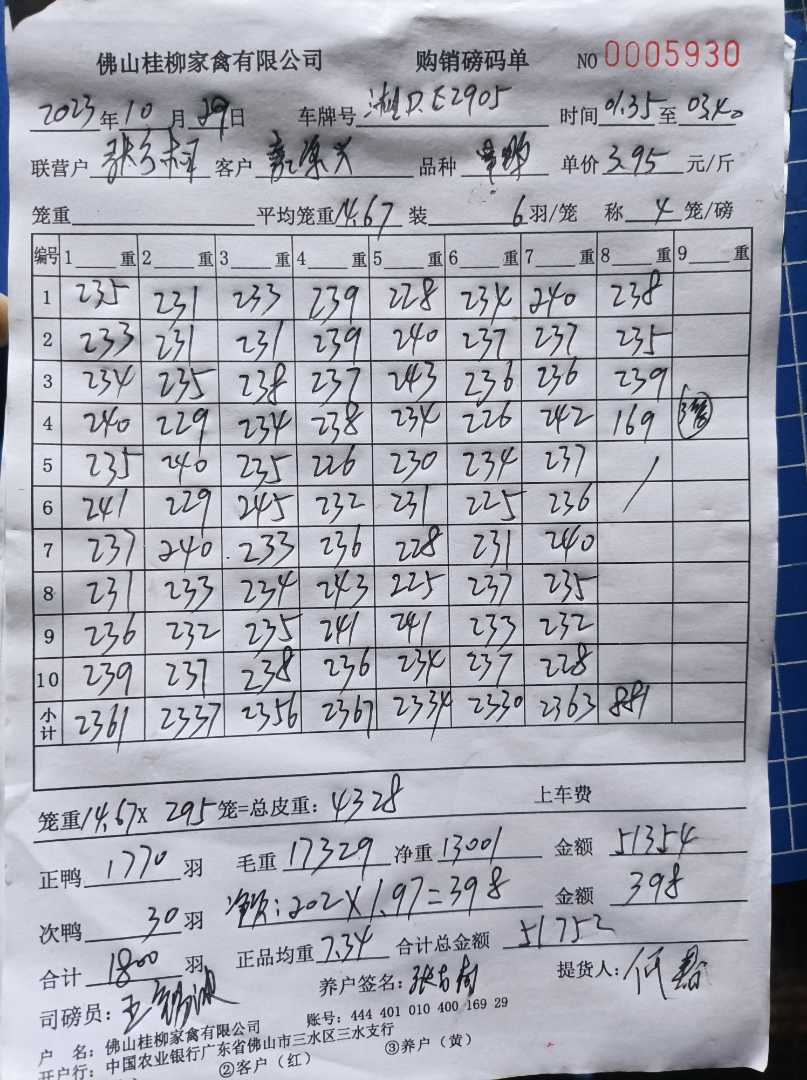 佛山桂柳家禽有限公司 购销磅码单 NO 0005930
2023年10月29日 车牌号 湘D.E2905 时间 01.35 至 03.40
联营户 客户 品种 单价 3.95 元/斤
笼重 平均笼重 14.67 装 6 羽/笼 称 4 笼/磅
编号 1 重 2 重 3 重 4 重 5 重 6 重 7 重 8 重 9 重
1 235 231 233 239 228 234 240 238
2 233 231 231 239 240 237 237 235
3 234 235 238 237 243 236 236 239
4 240 229 234 238 234 226 242 169
5 235 240 235 226 230 234 237
6 241 229 245 232 231 225 236
7 237 240 233 236 228 231 240
8 231 233 234 243 225 237 235
9 236 232 235 241 241 233 232
10 239 237 238 236 234 237 228
小计 2361 2337 2356 2367 2334 2330 2363 881
笼重 14.67 X 295 笼=总皮重: 4328 上车费
正鸭 1770 羽 毛重 17329 净重 13001 金额 51354
次鸭 30 羽 : 202 X 1.97 = 398 金额 398
合计 1800 羽 正品均重 7.34 合计总金额 51752
司磅员: 养户签名: 提货人:
户 名: 佛山桂柳家禽有限公司 账号: 444 401 010 400 169 29
开户行: 中国农业银行广东省佛山市三水区三水支行
②客户(红) ③养户(黄)